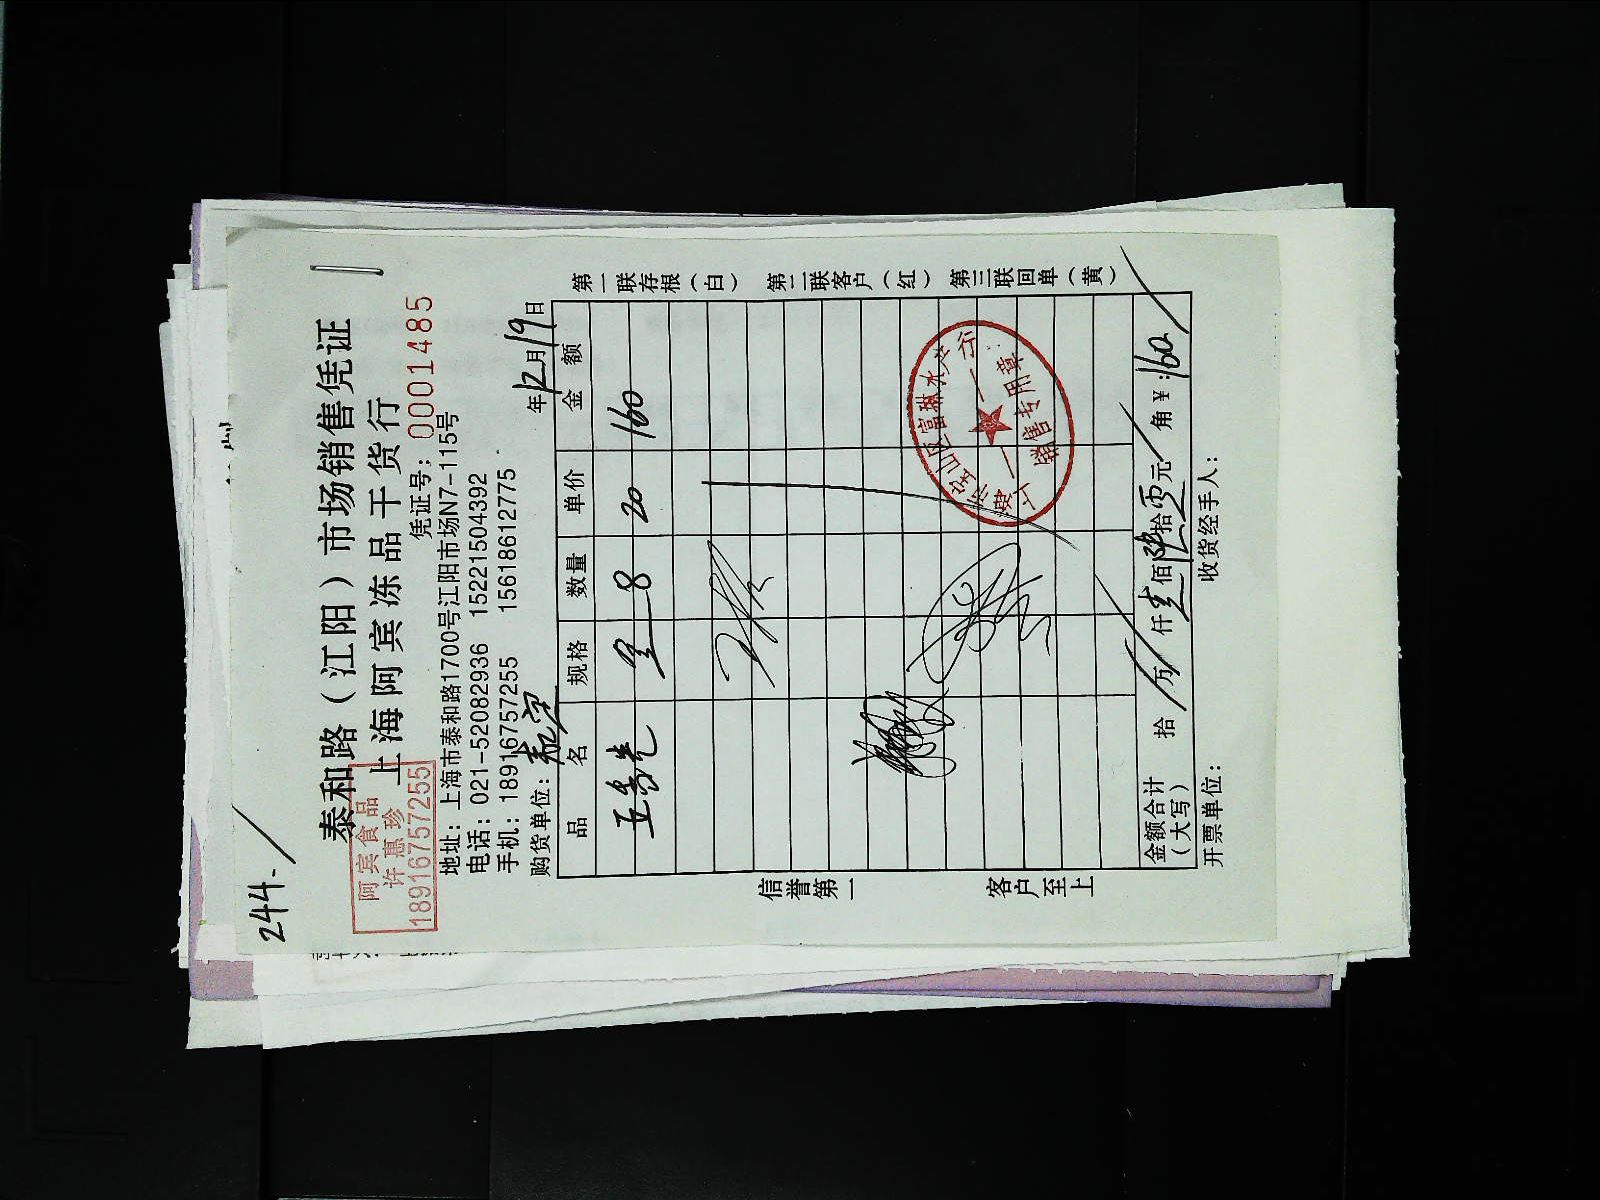 244.
阿宾食品
许惠珍
18916757255
泰和路（江阳）市场销售凭证
上海阿宾冻品干货行
凭证号：0001485
地址：上海市泰和路1700号江阳市场N7-115号
电话：021-52082936 15221504392
手机：18916757255 15618612775
购货单位： 年12月19日
品名 规格 数量 单价 金额
8 20 160
上海市宝山区富琳水产行
销售专用章
金额合计（大写） 拾万仟壹佰陆拾零元角 ￥：160
开票单位： 收货经手人：
信誉第一 客户至上
第一联存根（白） 第二联客户（红） 第三联回单（黄）